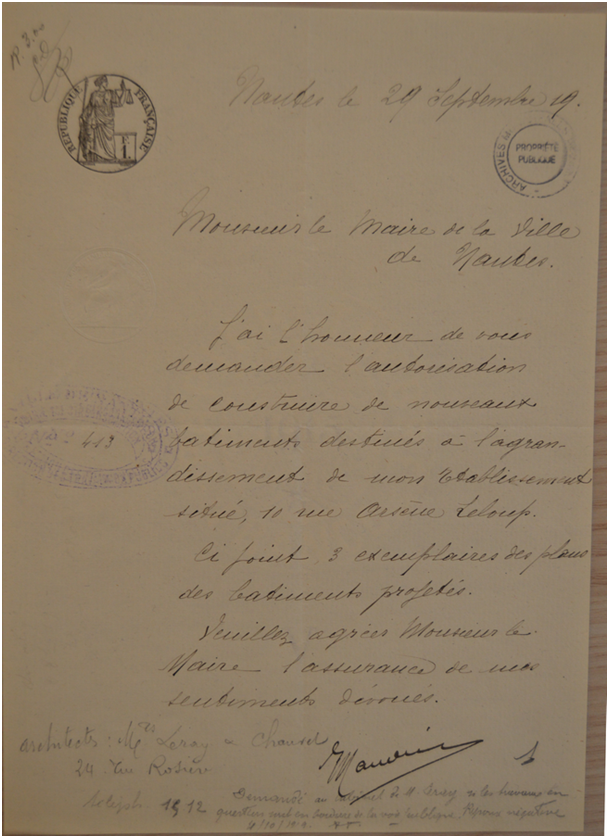 R. 3.00
RÉPUBLIQUE FRANÇAISE
F
1.
Nantes le 29 Septembre 19.
ARCHIVES M
PROPRIÉTÉ
PUBLIQUE
Monsieur le Maire de la Ville
de Nantes.
J'ai l'honneur de vous
demander l'autorisation
de construire de nouveaux
batiments destinés à l'agran-
dissement de mon Etablissement
situé, 10 rue Arsène Leloup.
413
Ci joint 3 exemplaires des plans
des batiments projetés.
Veuillez agréer Monsieur le
Maire l'assurance de mes
sentiments dévoués.
architects: Leray Chauvet
24 rue Rosière
téléph. 1512
Demandé au cabinet de M. Leray si les travaux en
question sont en bordure de la voie publique. Réponse négative